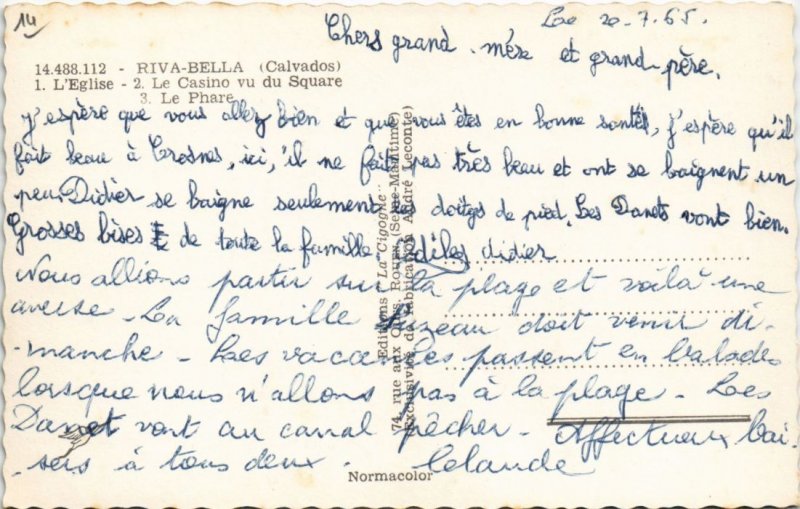 14
Le 20-7.65.
Chers grand-mère et grand-père,
14.488.112 - RIVA-BELLA (Calvados)
1. L'Eglise - 2. Le Casino vu du Square
3. Le Phare
J'espère que vous allez bien et que vous êtes en bonne santé, j'espère qu'il
fait beau à Crosnes, ici, il ne fait pas très beau et ont se baignent un
peu. Didier se baigne seulement les doitgs de pied. Les Danets vont bien.
Grosses bises de toute la famille. didier
Nous allions partir sur la plage et voilà une
averse - La famille doit venir di-
manche - Les vacances passent en balades
lorsque nous n'allons pas à la plage - Les
Danet vont au canal pêcher - Affectueux bai-
sers à tous deux.
Editions "La Cigogne"
74, rue aux Ours, Rouen (Seine-Maritime)
Exclusivité de fabrication André Leconte
Normacolor